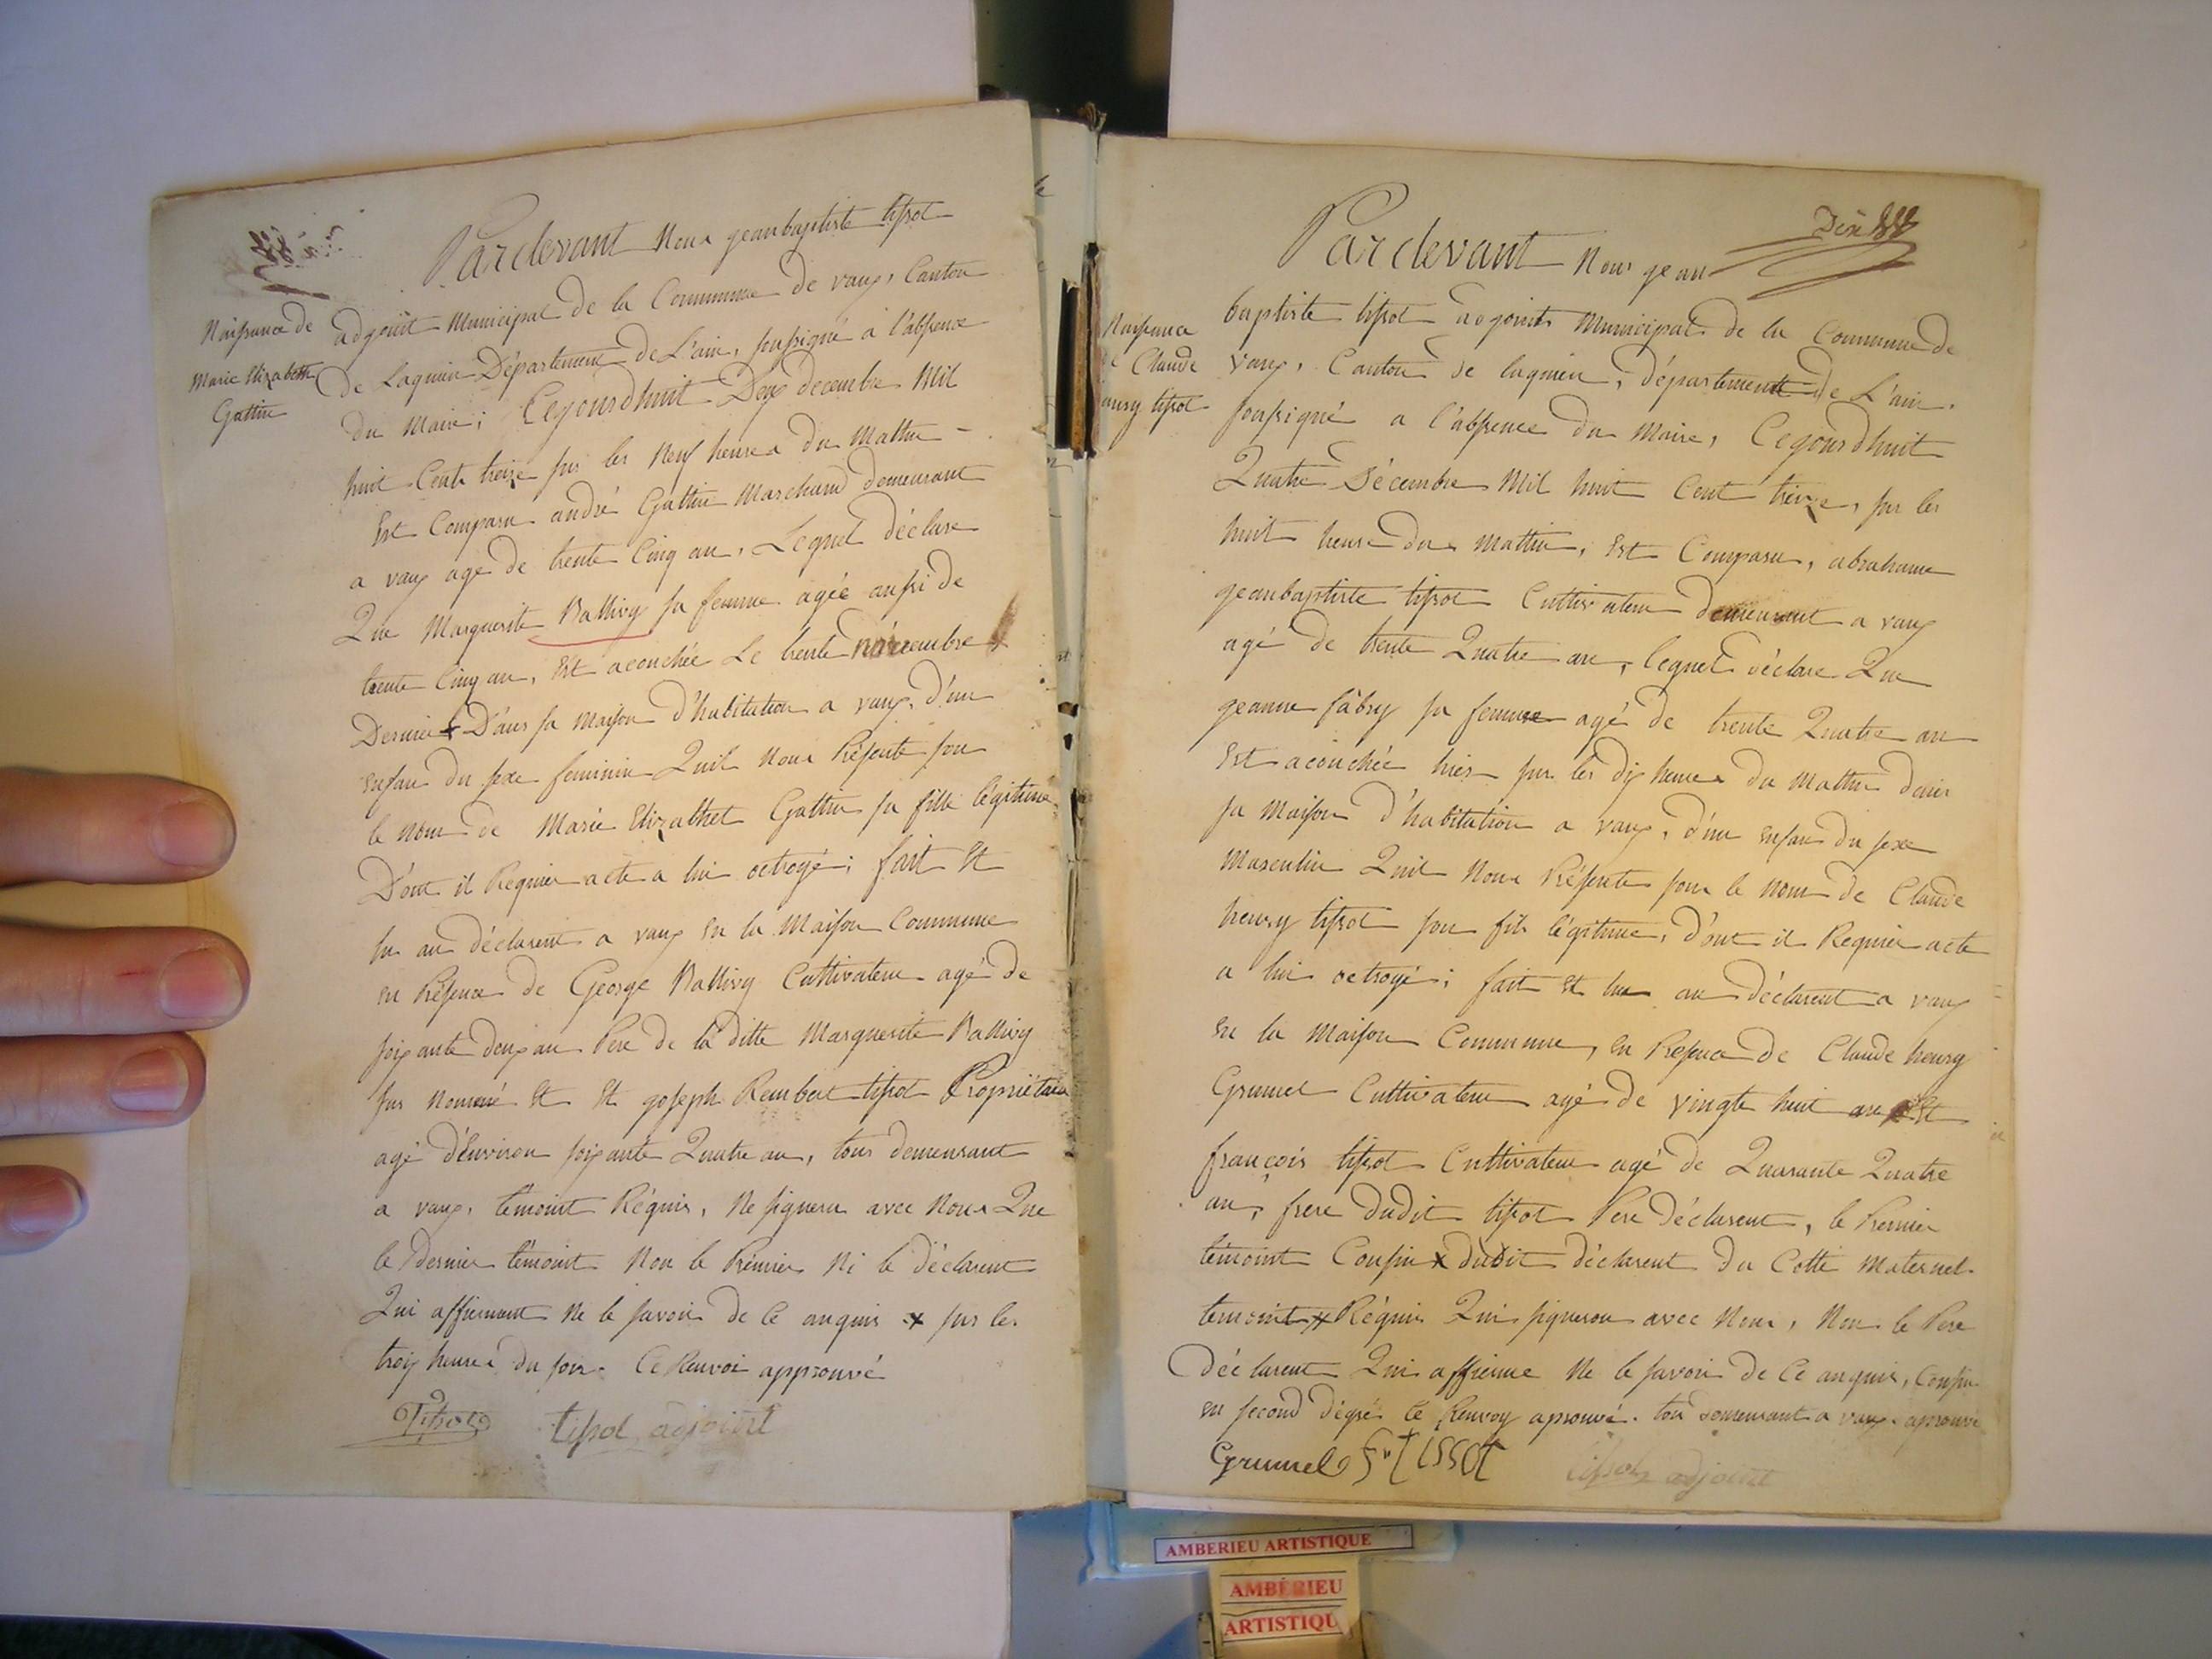 Naissance de
Marie Elizabeth
Gattin
Pardevant Nous jeanbaptiste tissot
adjoint Municipal de la Commune de vaux, Canton
de Lagnieu Département de L'ain, soussigné a l'abssence
du Maire; Cejourdhuit Deux decembre Mil
huit Cents treize sur les Neuf heures du Mattin
Est Comparu andré Gattin Marchand demeurant
a vaux agé de trente Cinq an, Lequel déclare
Que Marguerite Ballivy sa femme agée aussi de
trente Cinq an, Est acouchée Le trente novembre
Dernier x Dans sa Maison d'habitation a vaux, d'un
enfan du sexe feminin Quil Nous Présente sou
le nom de Marie Elizabhet Gattin sa fille légitime,
D'ont il Requier acte a lui octroyé; fait Et
lu au déclarent a vaux en la Maison Commune
en Présence de George Ballivy Cultivateur agé de
soixante deux an Pere de la ditte Marguerite Ballivy
sus nommé Et Et joseph Rembert tissot Propriétaire
agé d'Environ soixante Quatre an, tous demeurant
a vaux, témoint Réquis, Ne signeru avec Nous Que
le Dernier témoint Non le Prémier Ni le déclarent
Qui affirment Ne le savoir de Ce anquis x sur les
troix heures du soir. Ce Renvoi approuvé
Tissot tissot adjoint
Dix
Naissance
de Claude
henry tissot
Pardevant Nous jean
baptiste tissot adjoint Municipal de la Commune de
vaux, Canton de lagnieu, département de L'ain.
soussigné a l'abssence du Maire, Cejourdhuit
Quatre Décembre Mil huit Cent treize, sur les
huit heure du Mattin, Est Comparu, abrahame
jeanbaptiste tissot Cultivateur demeurant a vaux
agé de trente Quatre an, lequel déclare Que
jeanne fabry sa femme agé de trente Quatre an
Est acouchée hier sur les dix heures du Mattin dans
sa Maison d'habitation a vaux, d'un enfan du sexe
Masculin Quil Nous Présente sous le nom de Claude
henry tissot son fils légitime, d'ont il Requier acte
a lui octroyé; fait Et lu au déclarent a vaux
en la Maison Commune, en Présence de Claude henry
Grumel Cultivateur agé de vingte huit an Et
françois tissot Cultivateur agé de Quarante Quatre
an, frere dudit tissot Pere déclarent, le Premier
témoint Cousin x dudit déclarent du Cotté Maternel.
temoint x Réquis Qui signerou avec Nous, Non le Pere
déclarent Qui affirme Ne le savoir de Ce anquis, Cousin
en second dégré Ce Renvoy aprouvé. tou demeurant a vaux. aprouvé
Grumel fs Tissot tissot adjoint
AMBERIEU ARTISTIQUE
AMBÉRIEU
ARTISTIQU